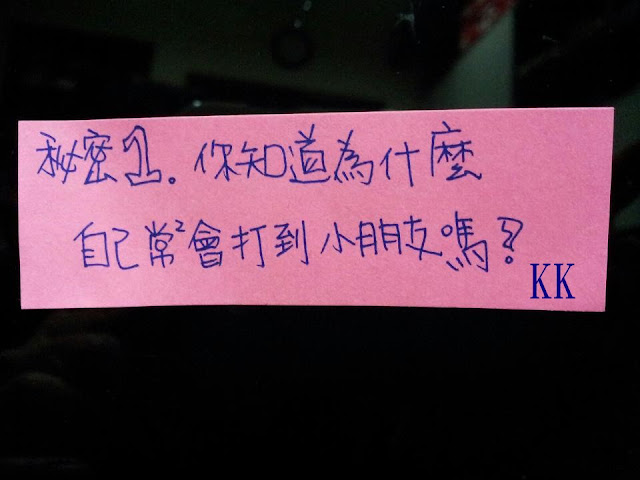 秘密1。你知道為什麼
自己常²會打到小朋友嗎?
KK